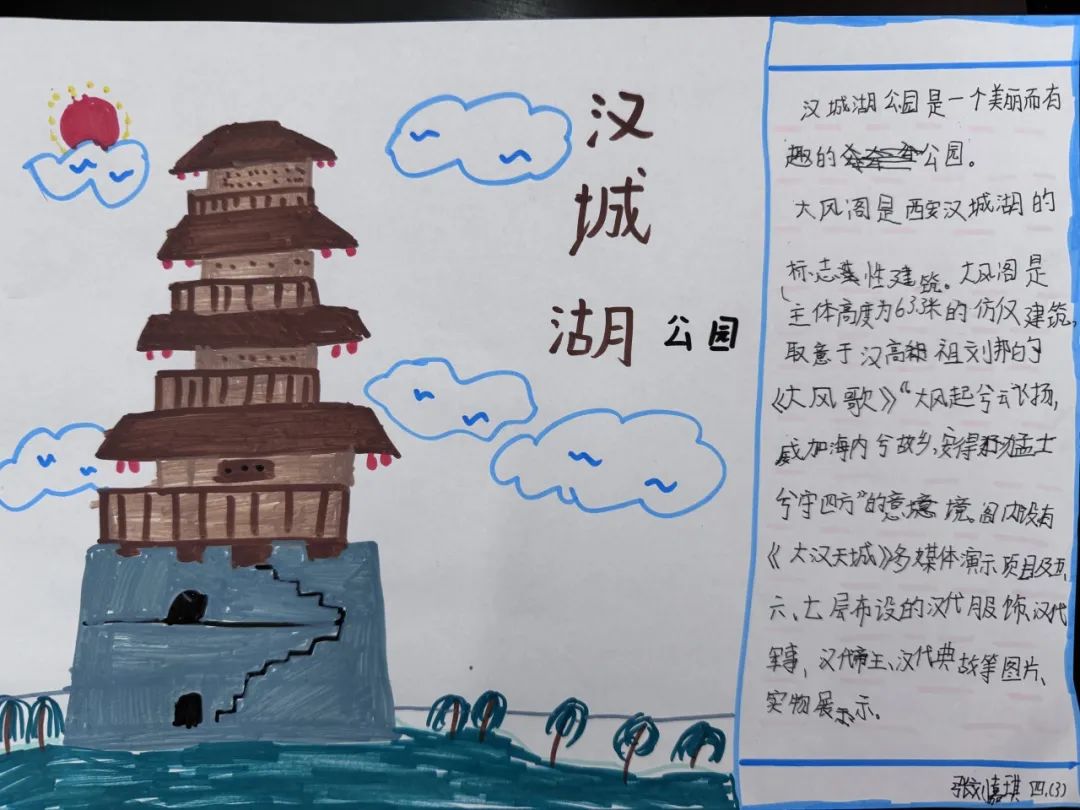 汉
城
湖 公园
汉城湖公园是一个美丽而有
趣的公园。
大风阁是西安汉城湖的
标志性建筑。大风阁是
主体高度为63.3米的仿汉建筑,
取意于汉高祖刘邦的
《大风歌》“大风起兮云飞扬,
威加海内兮故乡,安得猛士
兮守四方”的意境。阁内设有
《大汉天城》多媒体演示项目及五、
六、七层布设的汉代服饰、汉代
军事,汉代帝王、汉代典故等图片、
实物展示。
四.(3)